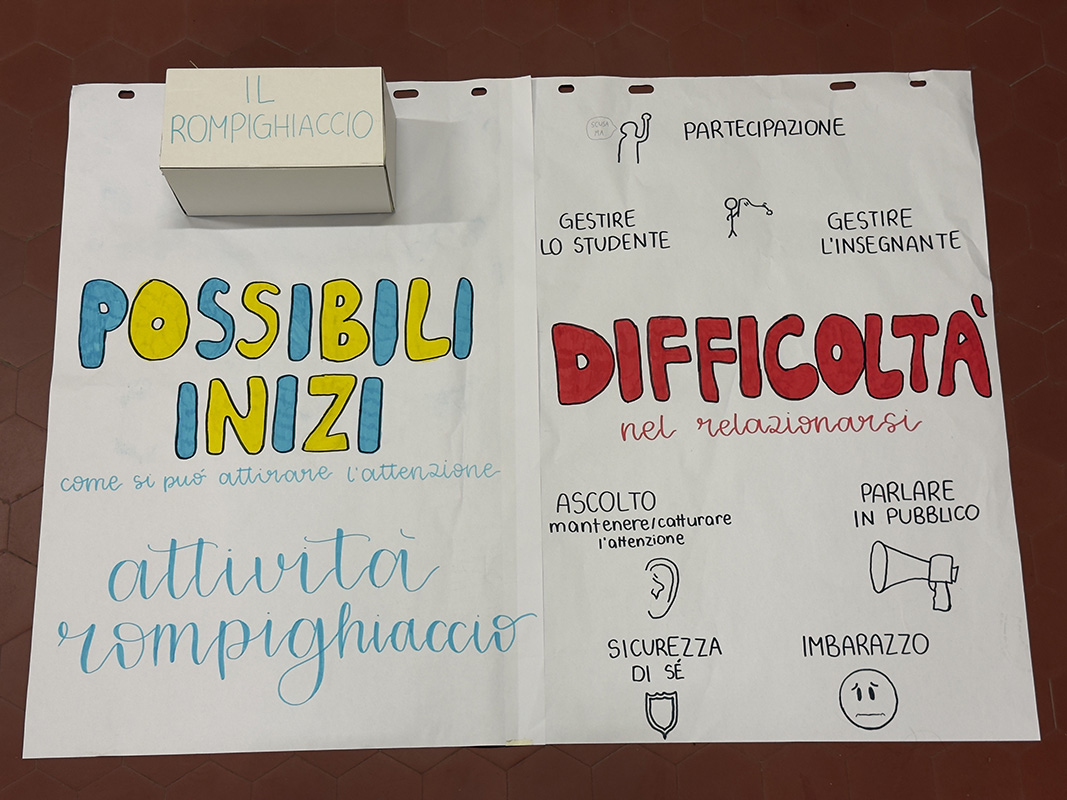 IL
ROMPIGHIACCIO
POSSIBILI
INIZI
come si puó attirare l'attenzione
attività
rompighiaccio
SCUSA
MA
PARTECIPAZIONE
GESTIRE
LO STUDENTE
GESTIRE
L'INSEGNANTE
DIFFICOLTÀ
nel relazionarsi
ASCOLTO
mantenere/catturare
l'attenzione
PARLARE
IN PUBBLICO
SICUREZZA
DI SÉ
IMBARAZZO